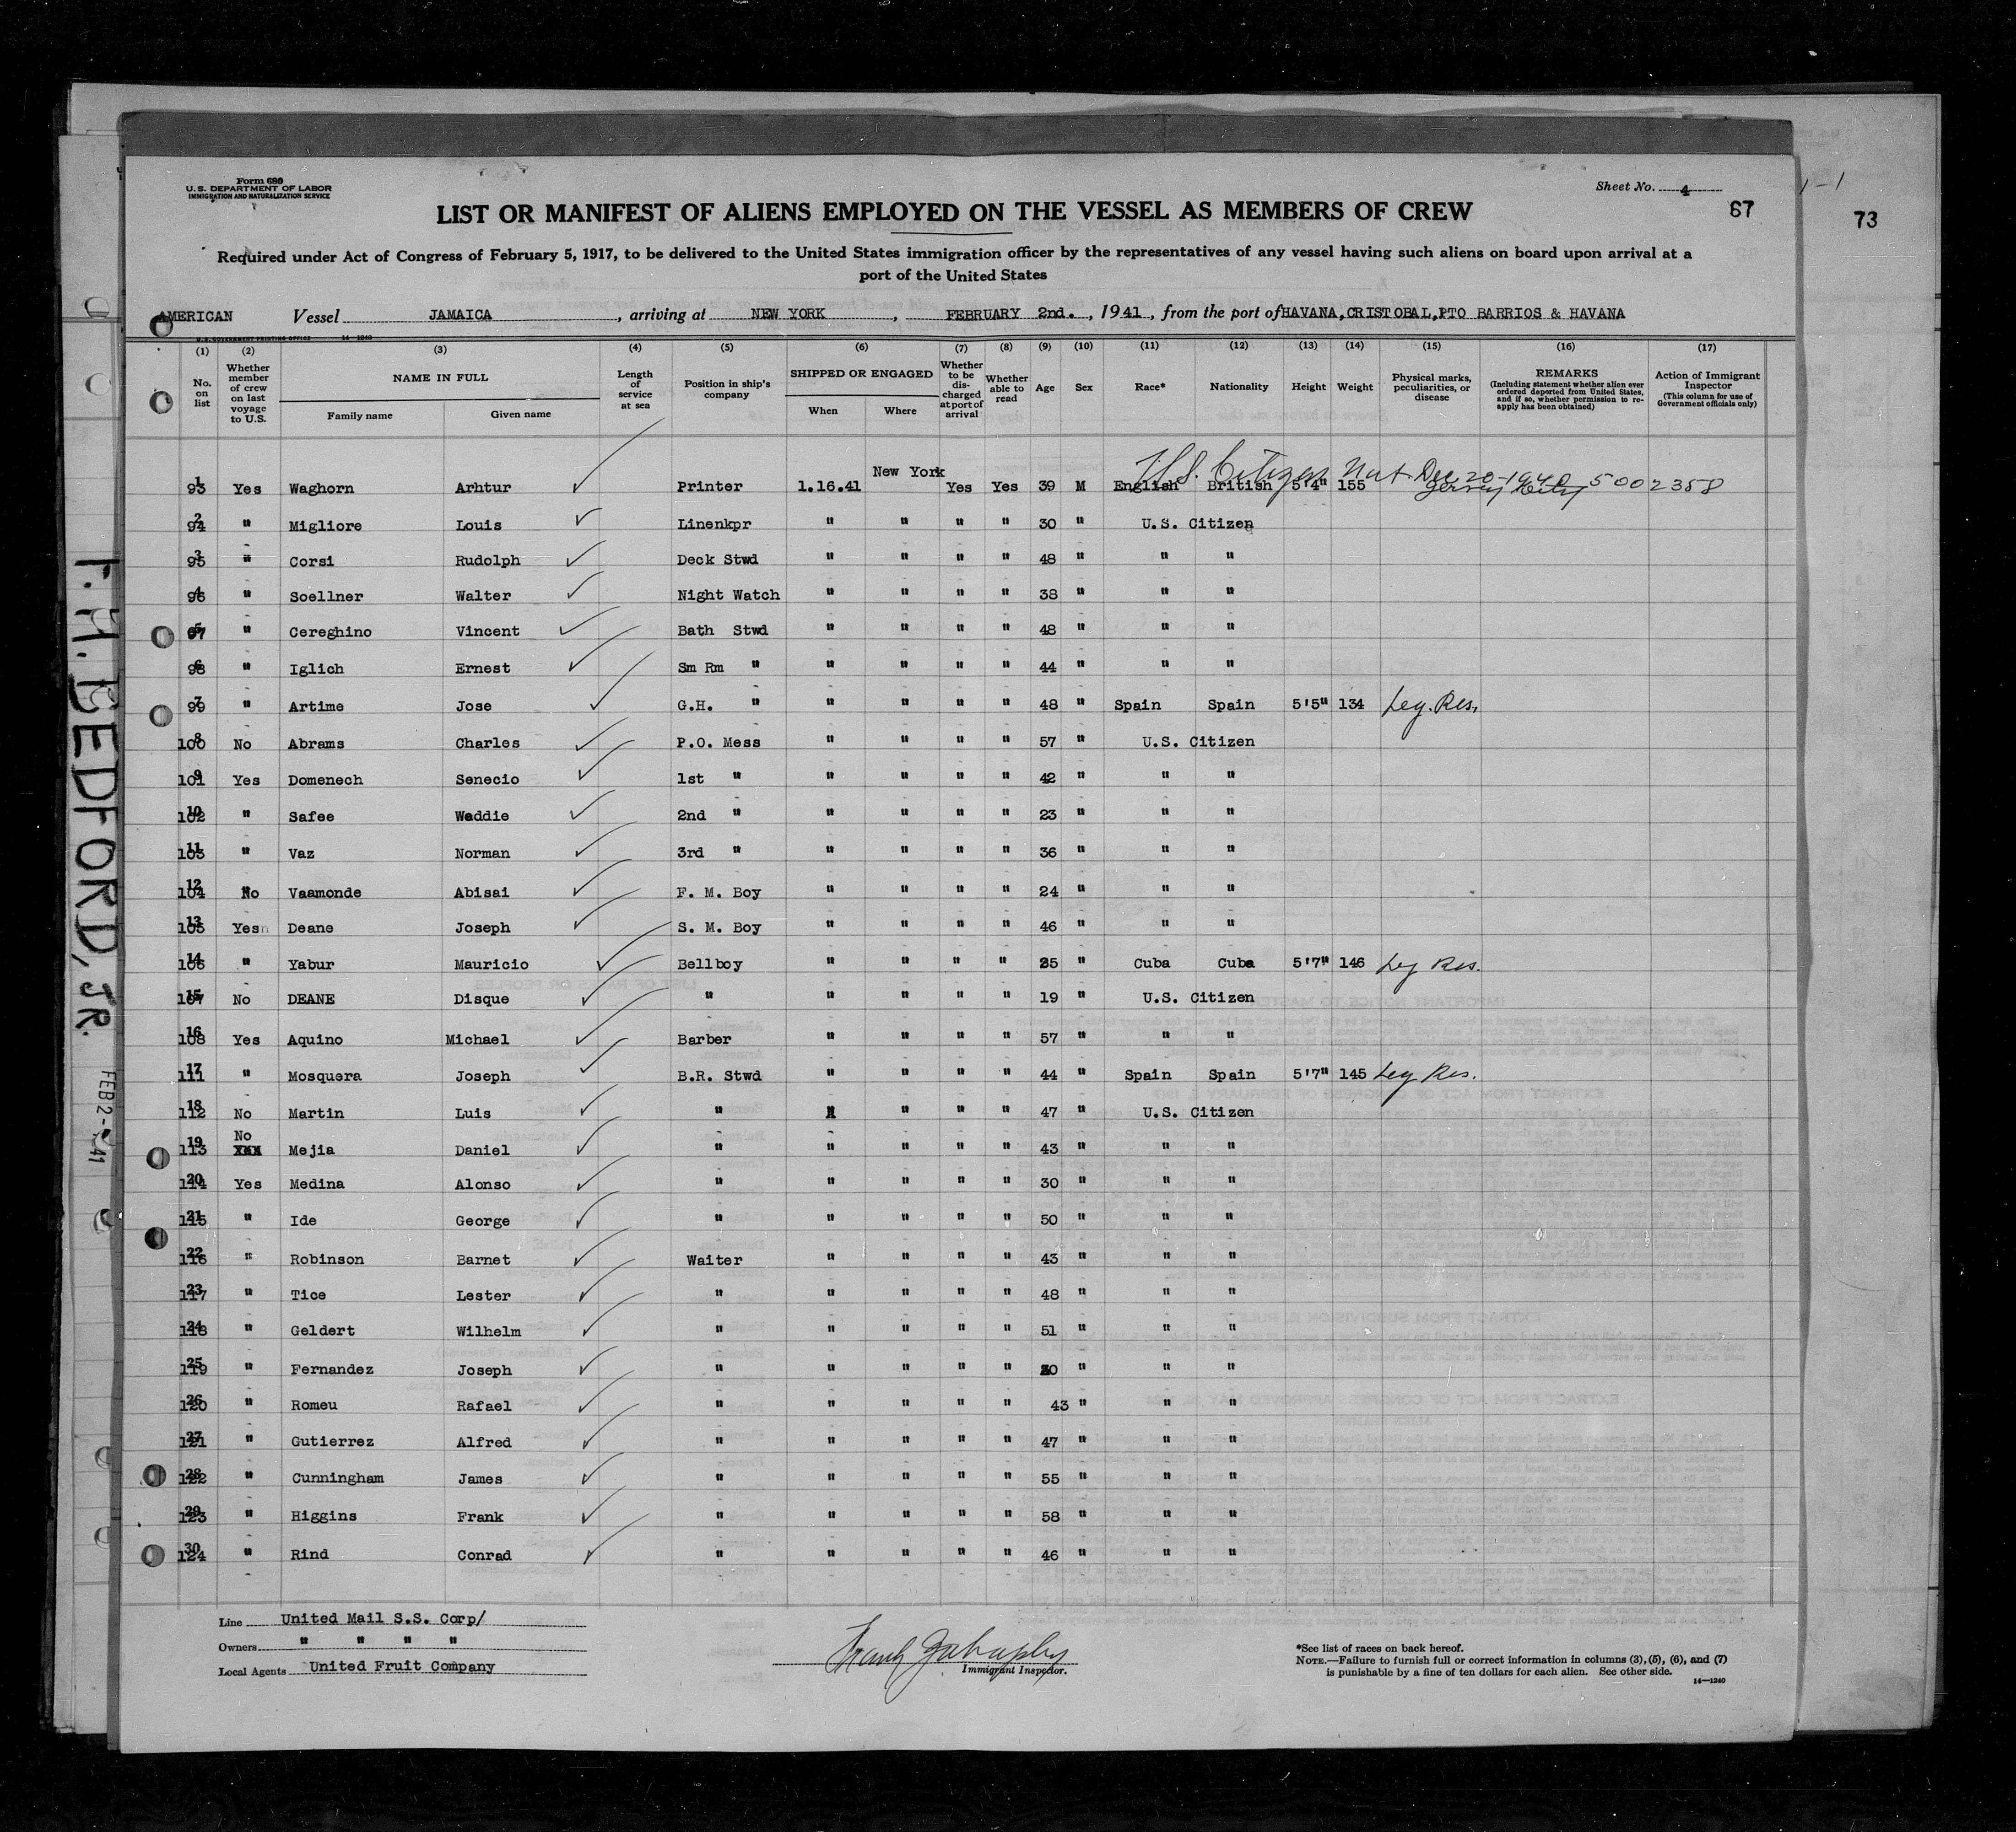 Form 680
U. S. DEPARTMENT OF LABOR
IMMIGRATION AND NATURALIZATION SERVICE
Sheet No. 4
67
73
1-1
LIST OR MANIFEST OF ALIENS EMPLOYED ON THE VESSEL AS MEMBERS OF CREW
Required under Act of Congress of February 5, 1917, to be delivered to the United States immigration officer by the representatives of any vessel having such aliens on board upon arrival at a
port of the United States
AMERICAN Vessel JAMAICA, arriving at NEW YORK, FEBRUARY 2nd., 1941, from the port of HAVANA,CRISTOBAL,PTO BARRIOS & HAVANA
U. S. GOVERNMENT PRINTING OFFICE 14—1240
(1) (2) (3) (4) (5) (6) (7) (8) (9) (10) (11) (12) (13) (14) (15) (16) (17)
No. on list
Whether member of crew on last voyage to U.S.
NAME IN FULL
Family name Given name
Length of service at sea
Position in ship's company
SHIPPED OR ENGAGED
When Where
Whether to be discharged at port of arrival
Whether able to read
Age
Sex
Race*
Nationality
Height
Weight
Physical marks, peculiarities, or disease
REMARKS
(Including statement whether alien ever ordered deported from United States, and if so, whether permission to re-apply has been obtained)
Action of Immigrant Inspector
(This column for use of Government officials only)
U.S. Citizen Nat Dec 20-1940 5002358
Jersey City
1 93 Yes Waghorn Arhtur Printer 1.16.41 New York Yes Yes 39 M English British 5'4" 155
2 94 " Migliore Louis Linenkpr " " " " 30 " U.S. Citizen
3 95 " Corsi Rudolph Deck Stwd " " " " 48 " " "
4 96 " Soellner Walter Night Watch " " " " 38 " " "
5 97 " Cereghino Vincent Bath Stwd " " " " 48 " " "
6 98 " Iglich Ernest Sm Rm " " " " " 44 " " "
7 99 " Artime Jose G.H. " " " " " 48 " Spain Spain 5'5" 134 Leg. Res.
8 100 No Abrams Charles P.O. Mess " " " " 57 " U.S. Citizen
9 101 Yes Domenech Senecio 1st " " " " " 42 " " "
10 102 " Safee Waddie 2nd " " " " " 23 " " "
11 103 " Vaz Norman 3rd " " " " " 36 " " "
12 104 No Vaamonde Abisai F. M. Boy " " " " 24 " " "
13 105 Yes Deane Joseph S. M. Boy " " " " 46 " " "
14 106 " Yabur Mauricio Bellboy " " " " 25 " Cuba Cuba 5'7" 146 Leg Res.
15 107 No DEANE Disque " " " " " 19 " U.S. Citizen
16 108 Yes Aquino Michael Barber " " " " 57 " " "
17 111 " Mosquera Joseph B.R. Stwd " " " " 44 " Spain Spain 5'7" 145 Leg Res.
18 112 No Martin Luis " " " " " 47 " U.S. Citizen
19 113 No Mejia Daniel " " " " " 43 " " "
20 114 Yes Medina Alonso " " " " " 30 " " "
21 115 " Ide George " " " " " 50 " " "
22 116 " Robinson Barnet Waiter " " " " 43 " " "
23 117 " Tice Lester " " " " " 48 " " "
24 118 " Geldert Wilhelm " " " " " 51 " " "
25 119 " Fernandez Joseph " " " " " " " "
26 120 " Romeu Rafael " " " " " 43 " " "
27 121 " Gutierrez Alfred " " " " " 47 " " "
28 122 " Cunningham James " " " " " 55 " " "
29 123 " Higgins Frank " " " " " 58 " " "
30 124 " Rind Conrad " " " " " 46 " " "
Line United Mail S.S. Corp/
Owners " " " "
Local Agents United Fruit Company
Immigrant Inspector.
*See list of races on back hereof.
NOTE.—Failure to furnish full or correct information in columns (3), (5), (6), and (7)
is punishable by a fine of ten dollars for each alien. See other side.
14—1240
BEDFORD, JR.
FEB 2- 41